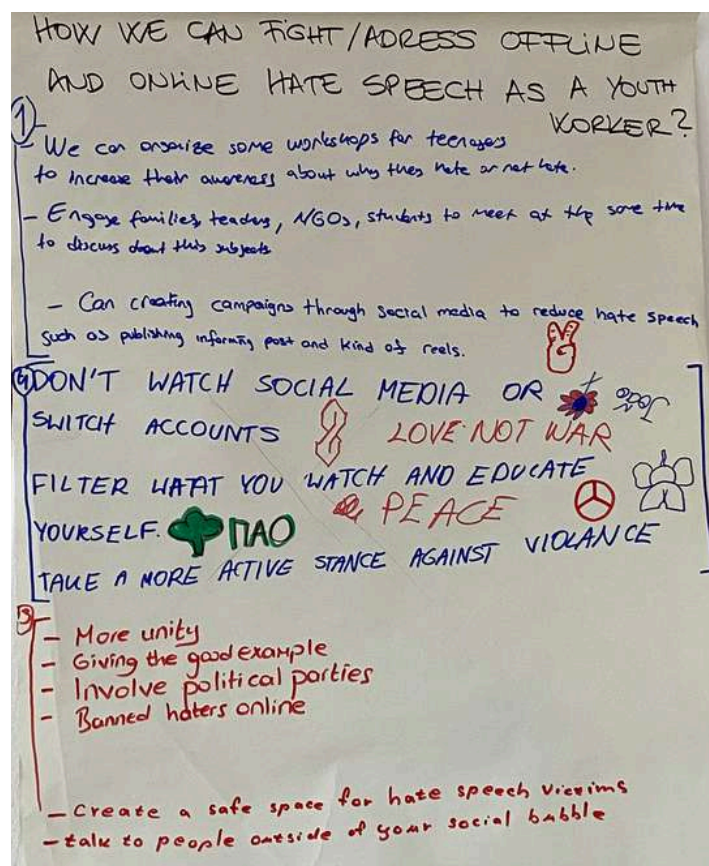 HOW WE CAN FIGHT/ADRESS OFFLINE
AND ONLINE HATE SPEECH AS A YOUTH
WORKER?
1
- We can organize some workshops for teenagers
to increase their awareness about why they hate or not hate.
- Engage families, teachers, NGOs, students to meet at the same time
to discuss about this subjects
- Can creating campaigns through social media to reduce hate speech
such as publishing informing post and kind of reels.
DON'T WATCH SOCIAL MEDIA OR
SWITCH ACCOUNTS LOVE NOT WAR
FILTER WHAT YOU WATCH AND EDUCATE
YOURSELF. ΠΑΟ PEACE
TAKE A MORE ACTIVE STANCE AGAINST VIOLANCE
3
- More unity
- Giving the good example
- Involve political parties
- Banned haters online
- Create a safe space for hate speech victims
- talk to people outside of your social bubble